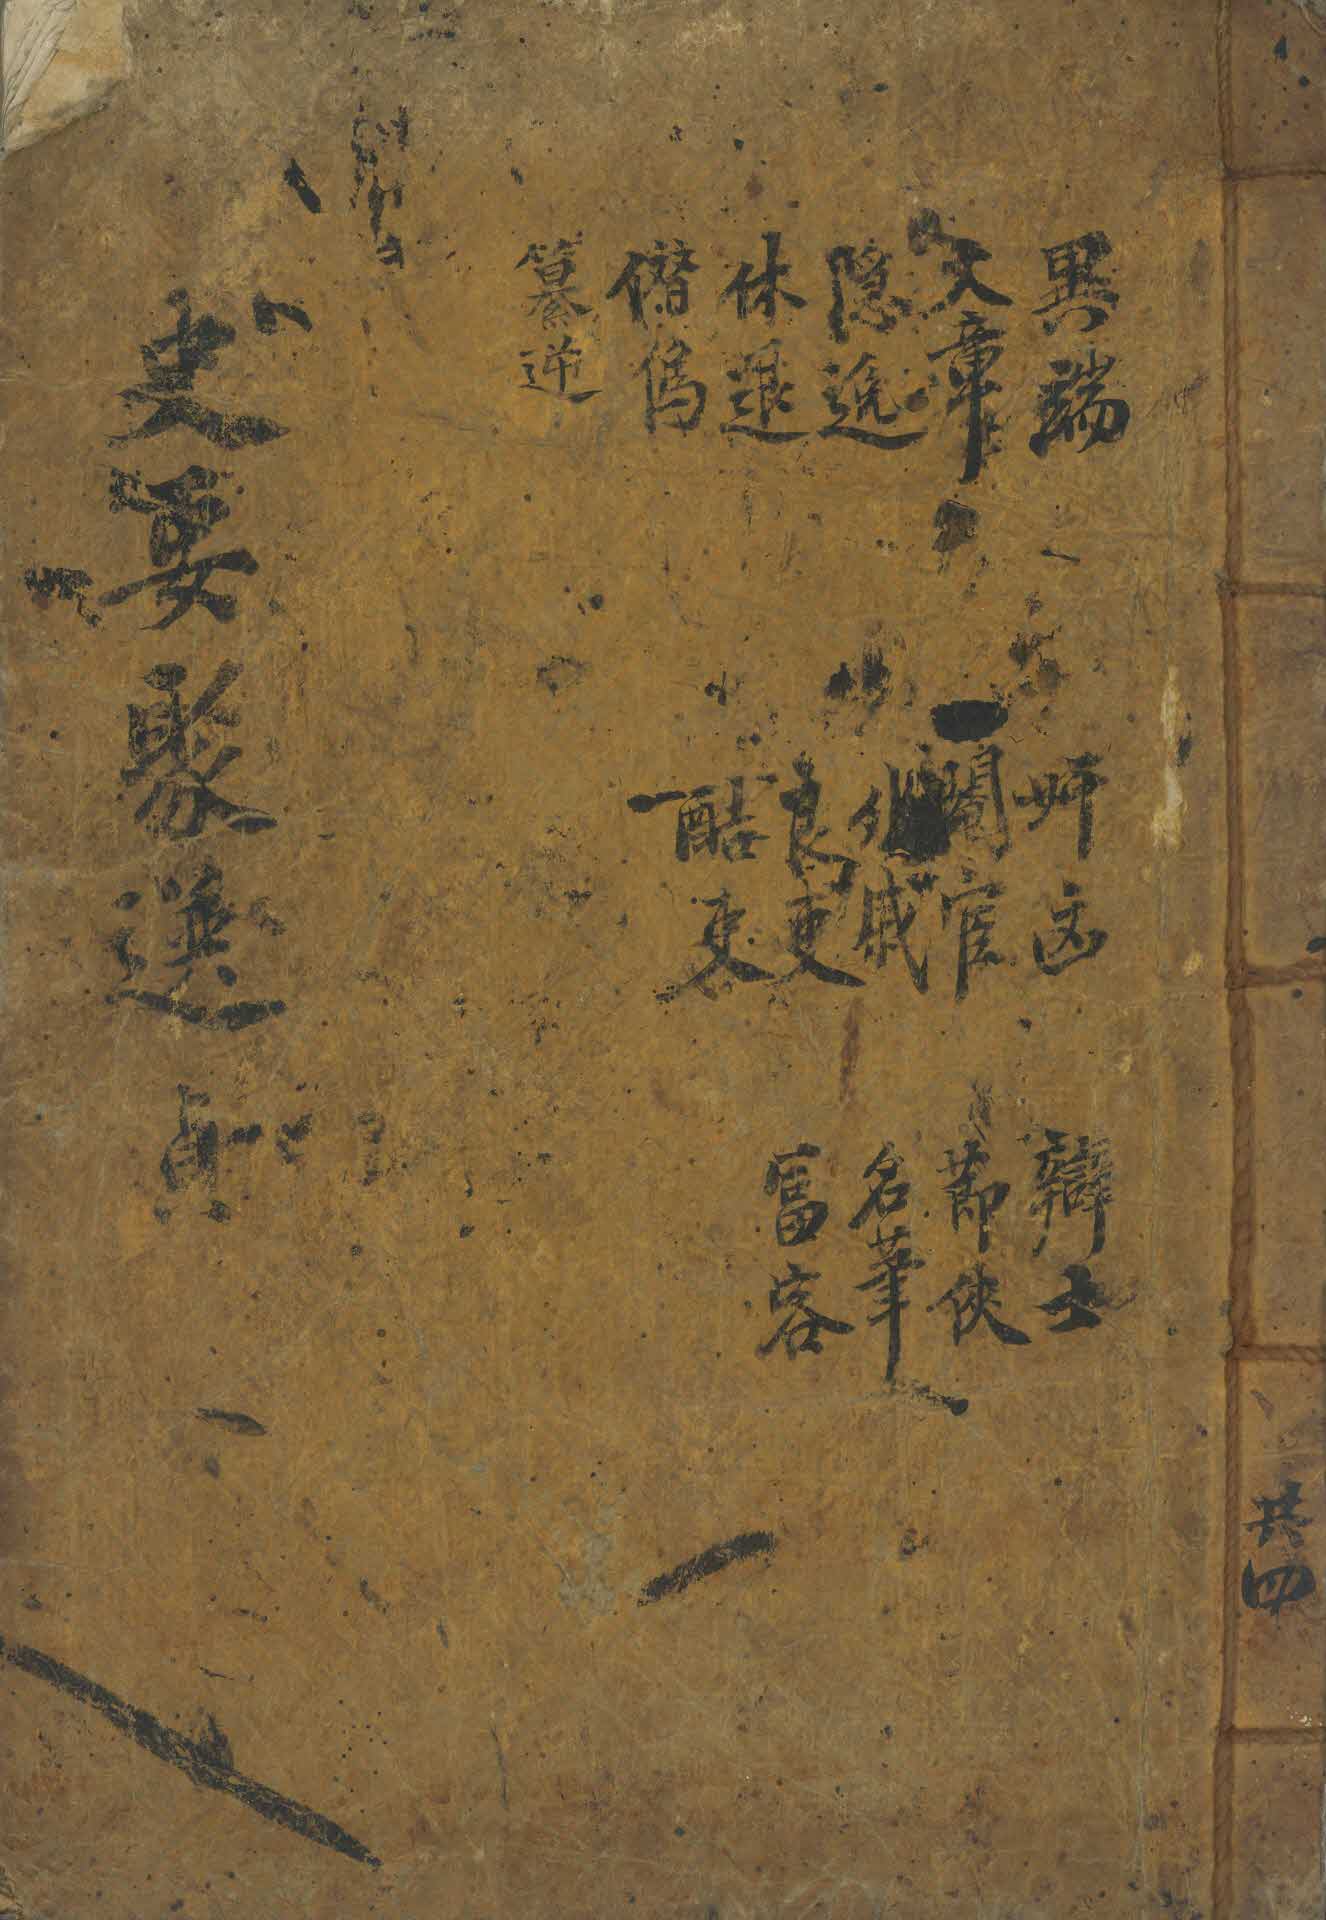 異端
文章
隠逸
休退
僭僞
簒逆
奸凶
閹官
外戚
良吏
酷吏
辯士
節俠
名筆
富客
史要聚選
貞
共四